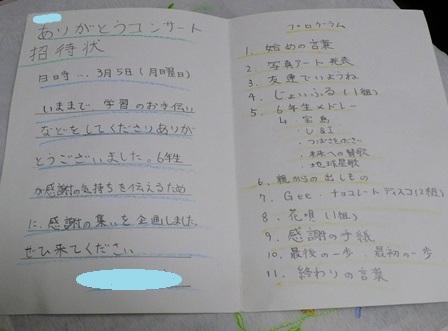 ありがとうコンサート
招待状
日時…3月5日(月曜日)
いままで 学習のお手伝い
などをしてくださりありが
とうございました。6年生
が感謝の気持ちを伝えるため
に、感謝の集いを企画しました。
ぜひ来てください
プログラム
1. 始めの言葉
2. 写真アート発表
3. 友達でいようね
4. じょいふる(1組)
5. 6年生メドレー
・宝島
・U&I
・つばさをください
・未来への賛歌
・地球星歌
6. 親からの出しもの
7. Gee・チョコレートディスコ(2組)
8. 花唄(1組)
9. 感謝の手紙
10. 最後の一歩 最初の一歩
11. 終わりの言葉